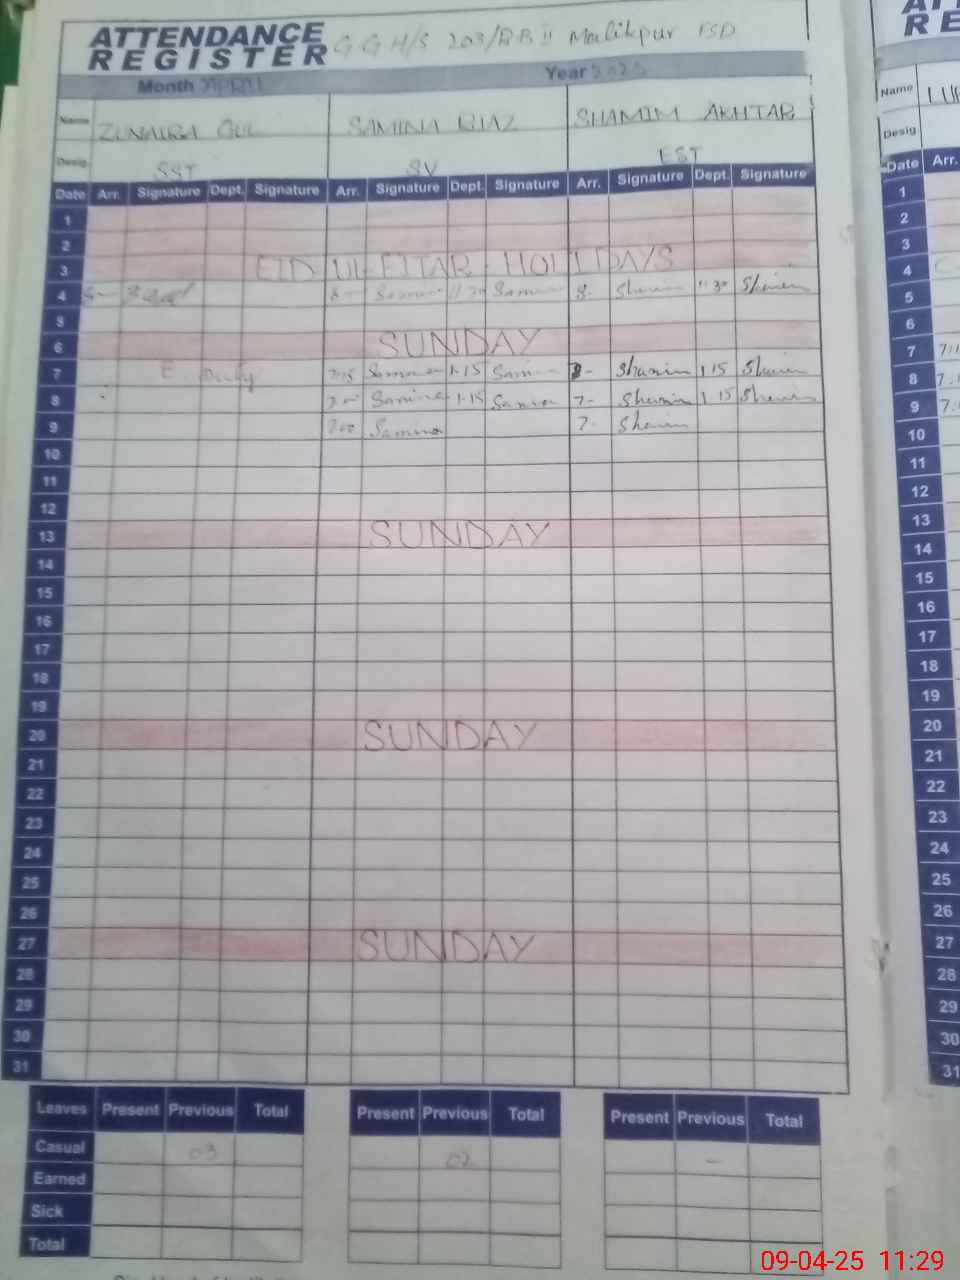 ATTENDANCE REGISTER GGH/S 203/RB II Malikpur FSD
Month APRIL Year 2025
Name ZUNAIRA GUL SAMINA RIAZ SHAMIM AKHTAR
Desig. SST SV EST
Date Arr. Signature Dept. Signature Arr. Signature Dept. Signature Arr. Signature Dept. Signature
1
2
3 EID UL FITAR HOLIDAYS
4 8- 8- Samina 11.30 Samina 8- Shamim 11.30 Shamim
5
6 SUNDAY
7 E. Duty 7:15 Samina 1-15 Samina Shamim 1.15 Shamim
8 7.00 Samina 1-15 Samina 7- Shamim 1.15 Shamim
9 7.00 Samina 7- Shamim
10
11
12
13 SUNDAY
14
15
16
17
18
19
20 SUNDAY
21
22
23
24
25
26
27 SUNDAY
28
29
30
31
Leaves Present Previous Total Present Previous Total Present Previous Total
Casual 03 02 -
Earned
Sick
Total
Name
Desig.
Date Arr.
1
2
3
4
5
6
7
8
9
10
11
12
13
14
15
16
17
18
19
20
21
22
23
24
25
26
27
28
29
30
31
09-04-25 11:29